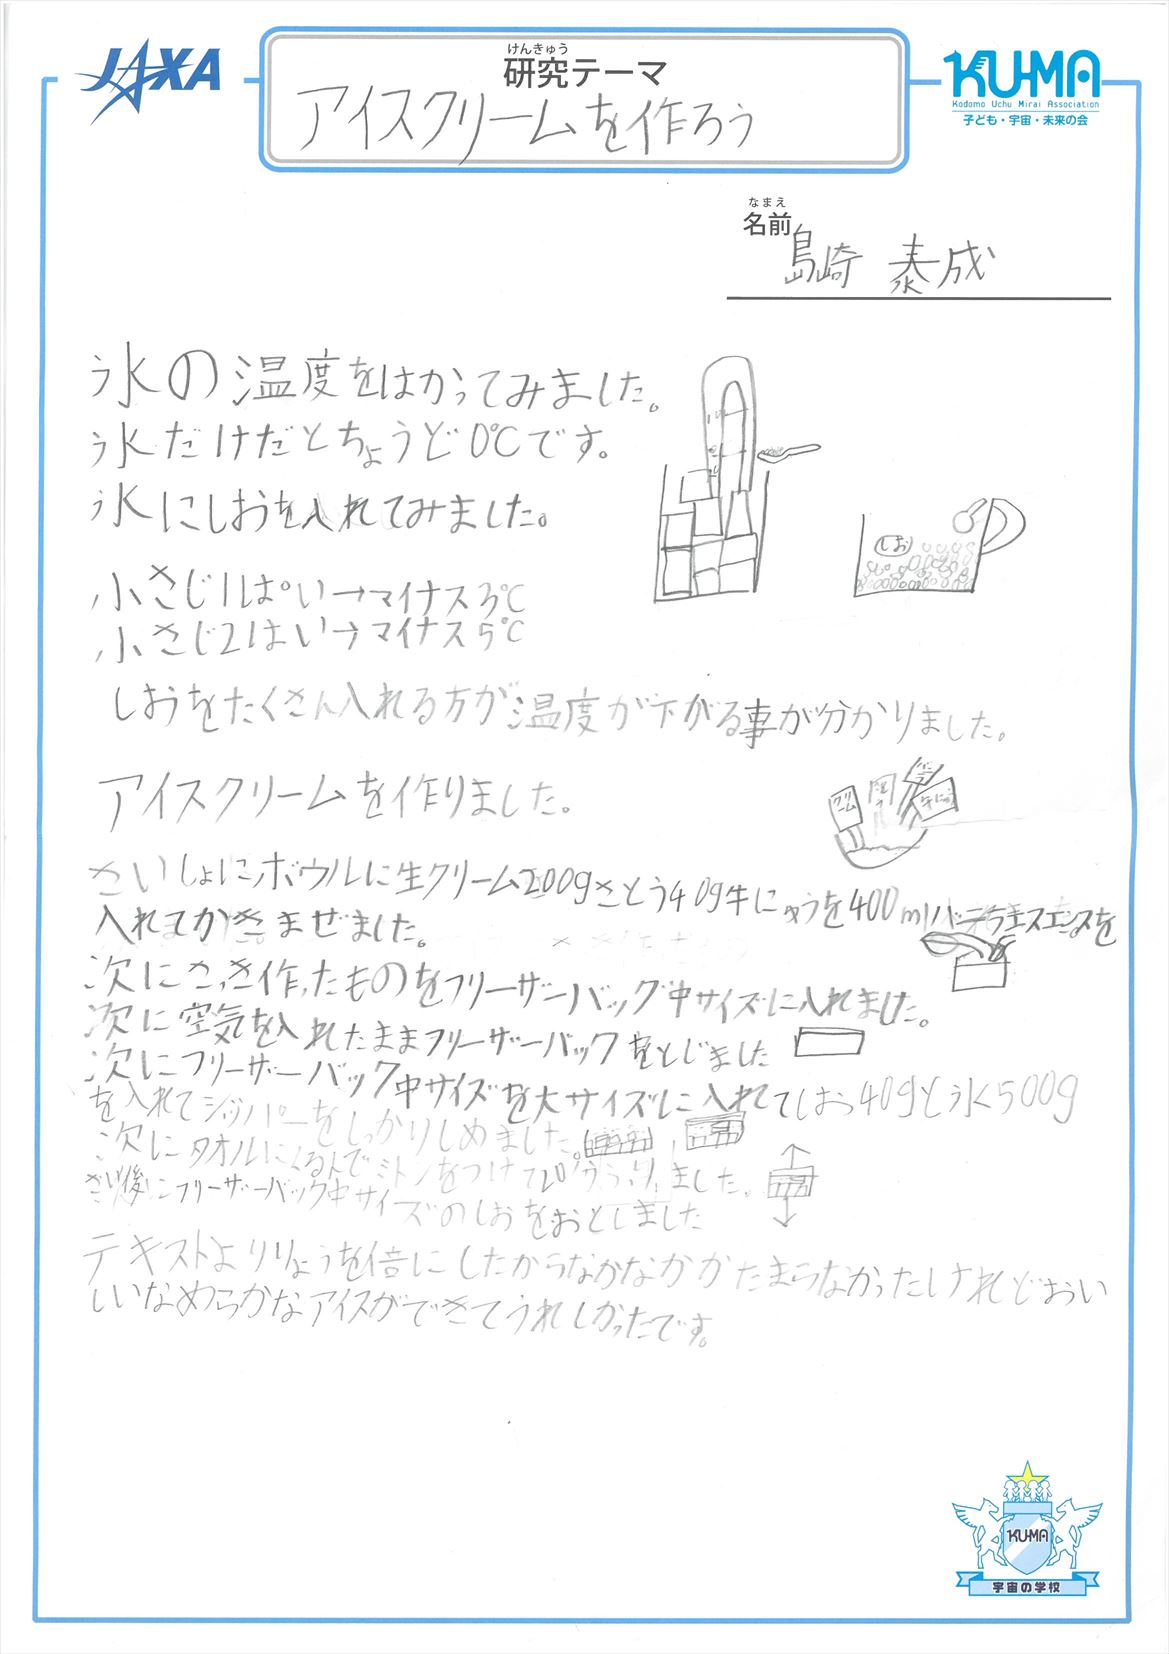 JAXA
けんきゅう
研究テーマ
アイスクリームを作ろう
KU-MA
Kodomo Uchu Mirai Association
子ども・宇宙・未来の会
なまえ
名前
島崎 泰成
氷の温度をはかってみました。
氷だけだとちょうど0℃です。
氷にしおを入れてみました。
しお
小さじ1ぱい→マイナス3℃
小さじ2はい→マイナス5℃
しおをたくさん入れる方が温度が下がる事が分かりました。
アイスクリームを作りました。
クリーム
さいしょにボウルに生クリーム200gさとう40g牛にゅうを400mlバニラエスエンスを
入れてかきまぜました。
次にさっき作ったものをフリーザーバッグ中サイズに入れました。
次に空気を入れたままフリーザーバックをとじました
次にフリーザーバック中サイズを大サイズに入れてしおっ40gと氷500g
を入れてジッパーをしっかりしめました。
次にタオルにくるんでミトンをつけて20ふりました。
さい後にフリーザーバック中サイズのしおをおとしました
テキストよりりょうを倍にしたからなかなかかたまらなかったけれどおい
しいなめらかなアイスができてうれしかったです。
KU-MA
宇宙の学校